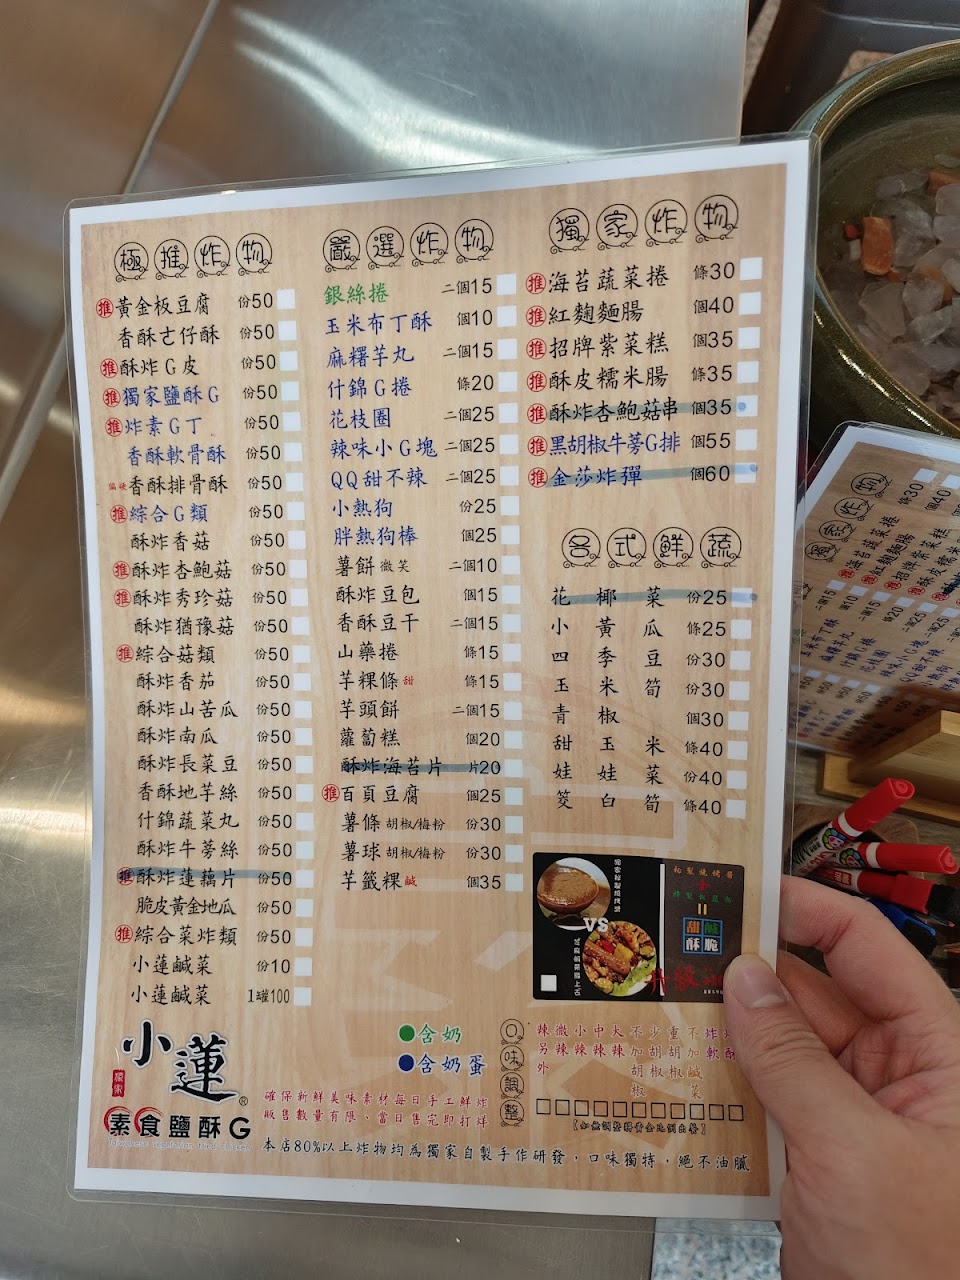 極推炸物
推黃金板豆腐 份50
香酥古仔酥 份50
推酥炸G皮 份50
推獨家鹽酥G 份50
推炸素G丁 份50
香酥軟骨酥 份50
偏硬香酥排骨酥 份50
推綜合G類 份50
酥炸香菇 份50
推酥炸杏鮑菇 份50
推酥炸秀珍菇 份50
酥炸猶豫菇 份50
推綜合菇類 份50
酥炸香茄 份50
酥炸山苦瓜 份50
酥炸南瓜 份50
酥炸長菜豆 份50
香酥地芋絲 份50
什錦蔬菜丸 份50
酥炸牛蒡絲 份50
推酥炸蓮藕片 份50
脆皮黃金地瓜 份50
推綜合菜炸類 份50
小蓮鹹菜 份10
小蓮鹹菜 1罐100
嚴選炸物
銀絲捲 二個15
玉米布丁酥 個10
麻糬芋丸 二個15
什錦G捲 條20
花枝圈 二個25
辣味小G塊 二個25
QQ甜不辣 二個25
小熱狗 份25
胖熱狗棒 個25
薯餅微笑 二個10
酥炸豆包 個15
香酥豆干 二個15
山藥捲 條15
芋粿條甜 條15
芋頭餅 二個15
蘿蔔糕 個20
酥炸海苔片 片20
推百頁豆腐 個25
薯條胡椒/梅粉 份30
薯球胡椒/梅粉 份30
芋籤粿鹹 個35
獨家炸物
推海苔蔬菜捲 條30
推紅麴麵腸 個40
推招牌紫菜糕 個35
推酥皮糯米腸 條35
推酥炸杏鮑菇串 個35
推黑胡椒牛蒡G排 個55
推金莎炸彈 個60
各式鮮蔬
花椰菜 份25
小黃瓜 條25
四季豆 份30
玉米筍 份30
青椒 個30
甜玉米 條40
娃娃菜 份40
筊白筍 條40
VS
甜鹹
酥脆
小蓮®
獨家
素食鹽酥G
含奶
含奶蛋
確保新鮮美味素材每日手工鮮炸
販售數量有限、當日售完即打烊
口味調整
辣微小中大不少重不炸
另辣辣辣辣加胡胡加軟酥
外 胡椒椒鹹
椒 菜
【如無調整將黃金比例出餐】
本店80%以上炸物均為獨家自製手作研發，口味獨特，絕不油膩